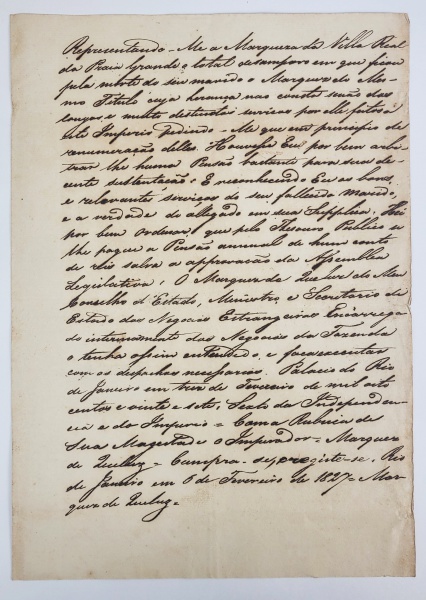 Representando-Me a Marqueza da Villa Real
da Praia Grande o total desamparo em que ficou
pela morte do seu marido o Marquez do Mes-
mo Titulo cuja herança não consta senão dos
longos e muito distinctos serviços por elle feitos a
este Imperio pedindo-Me que em principio de
remuneração delles Houvesse Eu por bem arbi-
trar lhe huma Pensão bastante para sua de-
cente sustentação: E reconhecendo Eu os bons
e relevantes serviços do seu fallecido marido,
e a verdade do allegado em sua Supplica, Hei
por bem ordenar, que pelo Thesouro Publico se
lhe pague a Pensão annual de hum conto
de reis salva a approvação da Assemblea
Legislativa. O Marquez de Queluz do Meu
Conselho d'Estado, Ministro e Secretario de
Estado dos Negocios Estrangeiros Encarrega-
do interinamente dos Negocios da Fazenda
o tenha assim entendido, e faça executar
com os despachos necessarios. Palacio do Rio
de Janeiro em trez de Fevereiro de mil oito
centos e vinte e sete, Sexto da Independen-
cia e do Imperio = Com a Rubrica de
Sua Magestade o Imperador = Marquez
de Queluz = Cumpra-se, e registe-se. Rio
de Janeiro em 6 de Fevereiro de 1827 = Mar-
quez de Queluz =